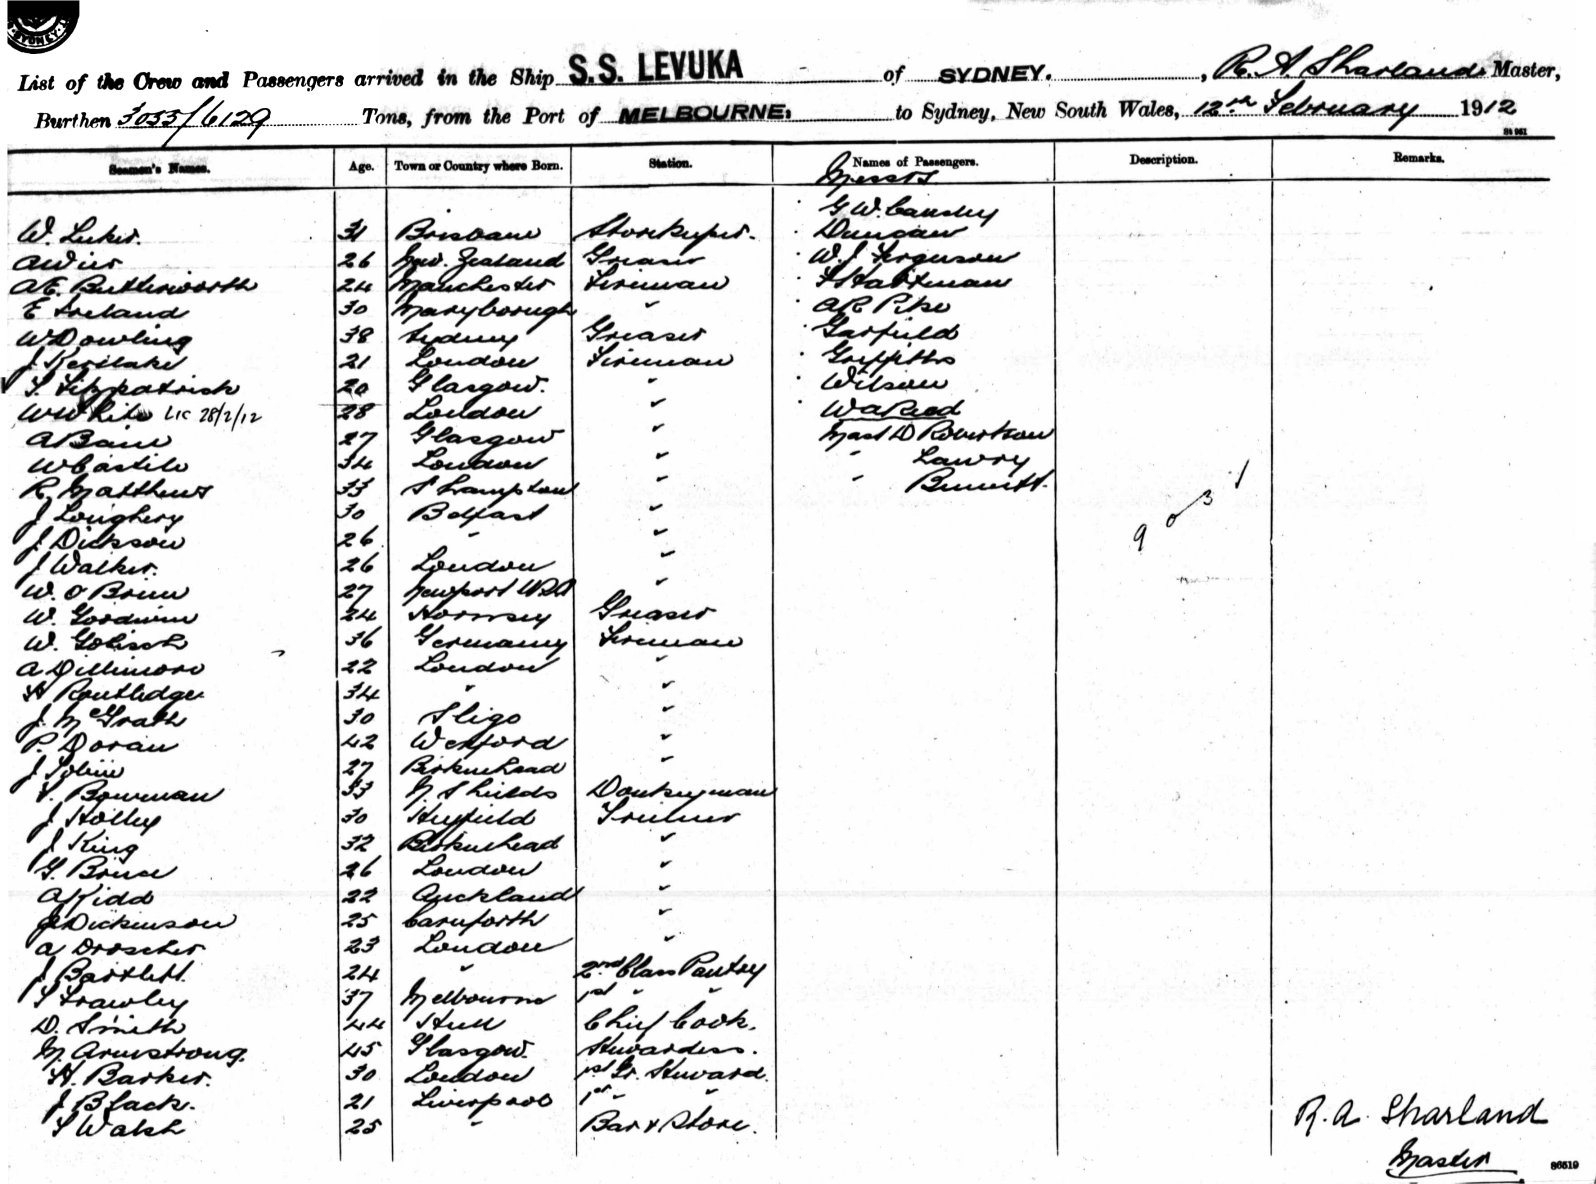 SYDNEY
List of the Crew and Passengers arrived in the Ship S.S. LEVUKA of SYDNEY. , R. A Sharland Master,
Burthen 3055/6129 Tons, from the Port of MELBOURNE. to Sydney, New South Wales, 12th February 1912
Seamen's Names. Age. Town or Country where Born. Station. Names of Passengers. Description. Remarks.
Messrs
G W.
W. Luker. 31 Brisbane Storekeeper. Duncan
A Wier 26 New. Zealand Greaser W. J Ferguson
A E. Butterworth 24 Manchester Fireman F Hartman
E Ireland 30 Maryborough " A R Pike
W Dowling 38 Sydney Greaser Garfield
J Keslake 21 London Fireman Griffiths
T. Fitzpatrick 20 Glasgow. " Wilson
W White Lic 28/2/12 28 London " W A Read
A Bain 27 Glasgow " Mast D Robertson
W Castile 34 London " " Lawry
R. Matthews 33 S'hampton " " Bennett.
J Loughery 30 Belfast "
J. Dickson 26 " "
J Walker. 26 London "
W. O Brien 27 Newport "
W. Goodwin 24 Hornsey Greaser
W. Golisch 36 Germany Fireman
A Dillimore 22 London "
H Routledge 34 " "
J. McGrath 30 Sligo "
P. Doran 42 Wexford "
J Tobin 27 Birkenhead "
T. Bowman 33 N. Shields Donkeyman
J Holley 30 Heyfield Trimmer
J King 32 Birkenhead "
G. Bruce 26 London "
A Kidd 22 Auckland "
J Dickinson 25 Carnforth "
A Droscher 23 London "
J Bartlett. 24 " 2nd Class Pantry
T Frawley 37 Melbourne 1st " "
D. Smith 44 Hull Chief Cook.
M. Armstrong. 45 Glasgow. Stewardess.
H. Barker. 30 London 1st Gr. Steward.
J Black. 21 Liverpool 1st " "
T Walsh 25 " Bar & Store.
R. A. Sharland
Master
86519